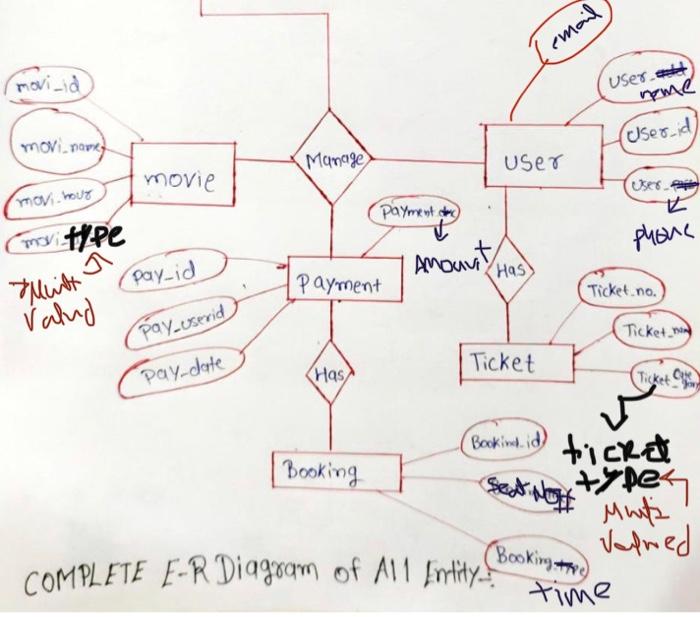 email
movi_id
User_
name
movi_name
User_id
movie
Manage
USER
movi_hour
User_
phone
movi_
type
Multi
Valued
Payment
Amount
Has
pay_id
Payment
Ticket_no.
pay_userid
Ticket_
pay_date
Ticket
Ticket_
Has
ticket
type
Multi
Valued
Booking_id
Booking
Booking_type
time
COMPLETE E-R Diagram of All Entity:-